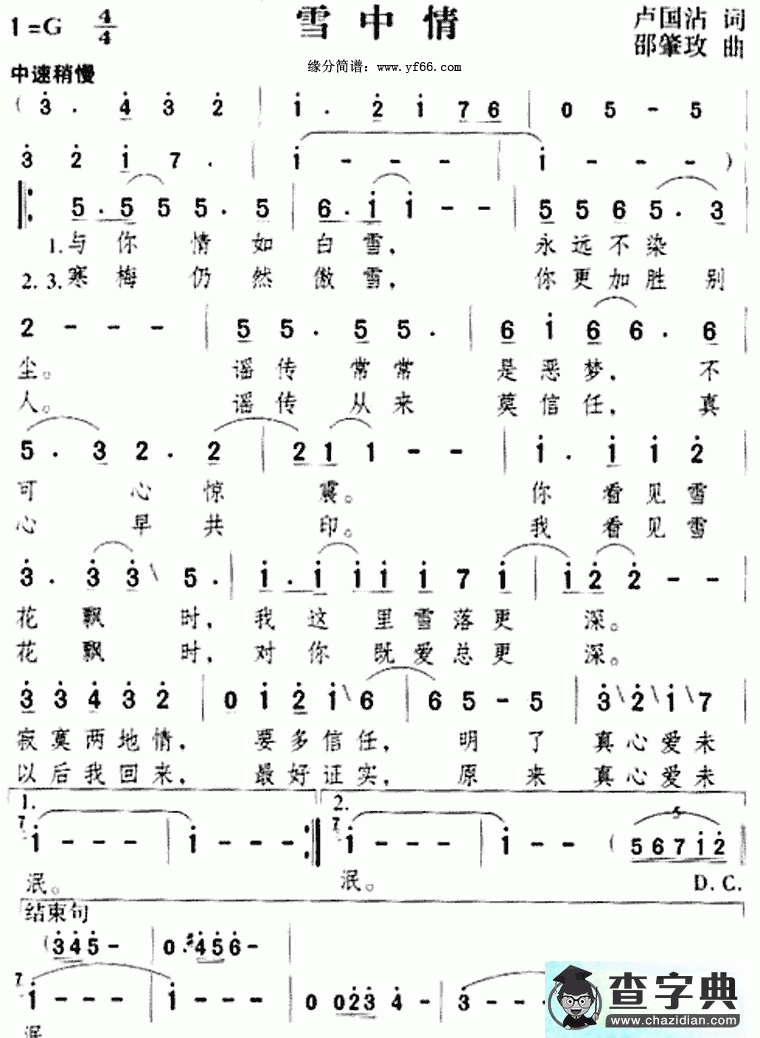 1=G 4/4 雪中情 卢国沾 词
邵肇玫 曲
缘分简谱：www.yf66.com
中速稍慢
( 3 . 4 3 2 | 1 . 2 1 7 6 | 0 5 - 5
3 2 1 7 . | 1 - - - | 1 - - - )
5 . 5 5 5 . 5 | 6 . 1 1 - - | 5 5 6 5 . 3
1.与你 情如 白雪， 永远不染
2.3.寒梅 仍然 傲雪， 你更加胜别
2 - - - | 5 5 . 5 5 . | 6 1 6 6 . 6
尘。 谣传 常常 是恶梦， 不
人。 谣传 从来 莫信任， 真
5 . 3 2 . 2 | 2 1 1 - - | 1 . 1 1 2
可 心惊 震。 你 看见雪
心 早共 印。 我 看见雪
3 . 3 3 \ 5 . | 1 . 1 1 1 1 7 1 | 1 2 2 - -
花 飘 时， 我这 里雪落更 深。
花 飘 时， 对你 既爱总更 深。
3 3 4 3 2 | 0 1 2 1 \ 6 | 6 5 - 5 | 3 \ 2 \ 1 \ 7
寂寞两地情， 要多信任， 明了 真心爱未
以后我回来， 最好证实， 原来 真心爱未
1. 2.
7 1 - - - | 1 - - - 7 1 - - - | 1 - - ( 5 6 7 1 2 5
泯。 泯。 D.C.
结束句
( 3 4 5 - | 0 . #4 5 6 - |
7 1 - - - | 1 - - - | 0 0 2 3 4 - | 3 - -
泯
查字典
www.chazidian.com